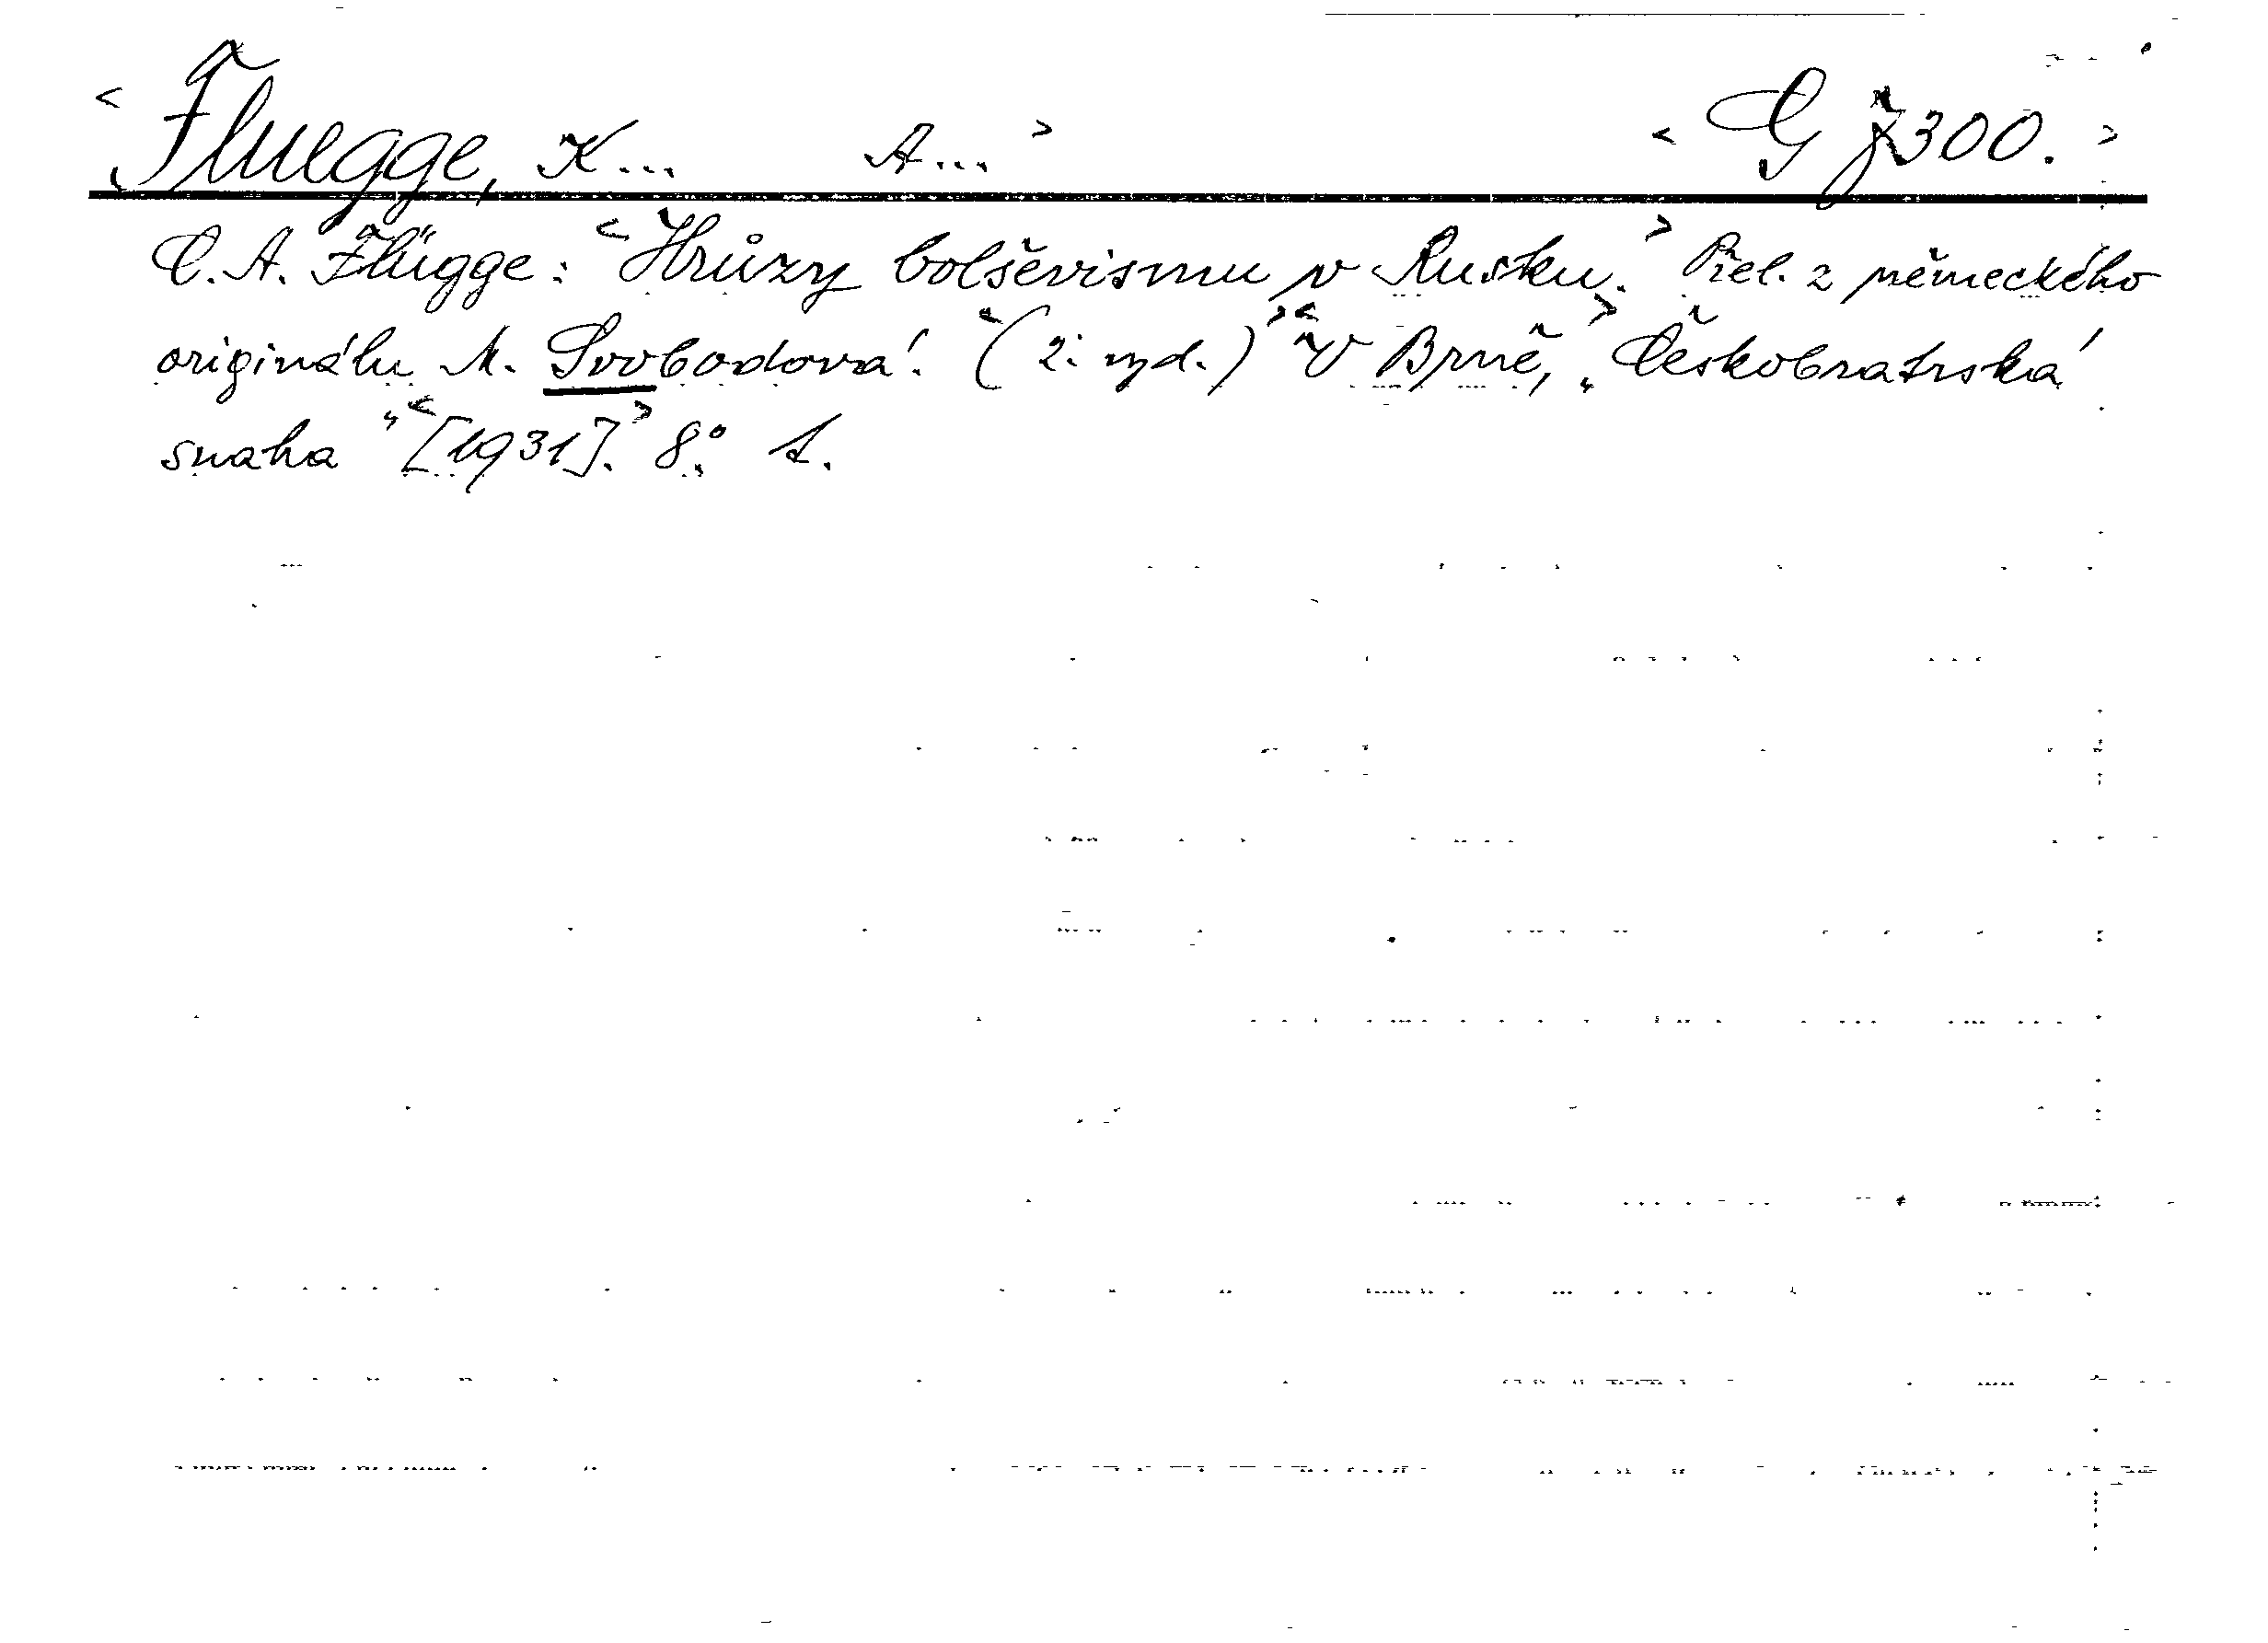 <Fluegge, K... A...> <G 7300.>
C. A. Flügge: <Hrůzy bolševismu v Rusku.> Přel. z německého
originálu M. Svobodová. <(2. vyd.)> <V Brně,> „Českobratrská
snaha" <[1931].> 8°. 1.